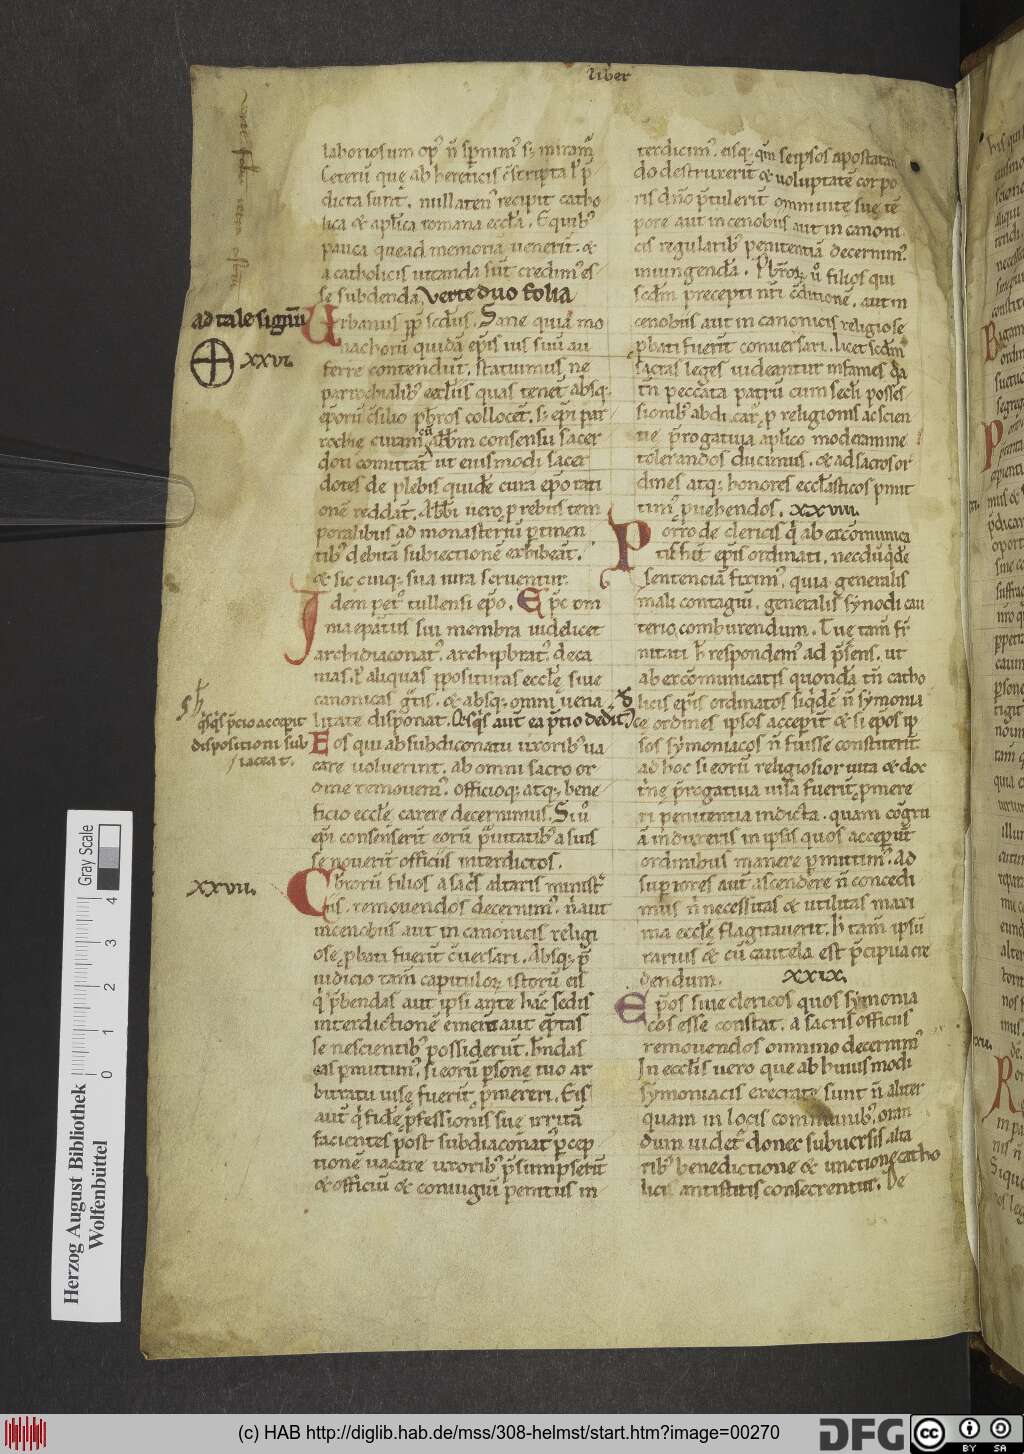 liber
laboriosum op⁹ n̄ sp̄nim⁹ s; miram̄
Ceterū quę ab hereticis c̄scripta ł p̄
dicta sunt, nullaten⁹ recipit catho
lica & apl̓ica romana eccl̓a. E quib⁹
pauca quę ad memoriā venerūt. &
a catholicis vitanda sūt credim⁹ es
se subdenda. verte duo folia
ad tale signū
xxvi.
Urbanus pp̄ scd̓us. Sane quia mo
nachorū quidā ep̄is ius suū au
ferre contendūt. statuimus ne
parrochialib⁹ eccl̓iis quas tenēt absq;
ep̄orū c̄silio p̄bros collocēt. s; ep̄i par
rochię curam cū abb̄m consensu sacer
doti comittāt ut eiusmodi sacer
dotes de plebis quidē cura ep̄o rati
onē reddāt. Abb̄i vero, p rebus tem
poralibus ad monasteriū p̱tinen
tib⁹ debitā subiectionē exhibeāt.
& sic cuiq; sua iura serventur
Idem petr̓ tullensi ep̄o. Ep̄c om
nia epat̄us sui membra videlicet
archidiaconat⁹. archip̄brat⁹. deca
nias. ł aliquas p̱posituras eccl̓ę sive
canonicas gr̄tis. & absq; omni vena
litate disponat. Qs̄q̄s aut̄ ea p̄tio dedit.
q̄sq̄s p̄cio acceperit
dispositioni sub
iaceat.
Eos qui ab subdiconatu uxorib⁹ va
care voluerint. ab omni sacro or
dine removem⁹. officioq; atq; bene
ficio eccl̓ę carere decernimus. Si v̊
ep̄i consenserīt eorū p̄vitatib⁹ a suis
se noverīt officiis interdictos.
xxvii.
P̄brorū filios a sac̄s altaris minist̄
iis. removendos decernim⁹. n̄ aut
in cenobiis aut in canonicis religi
osę p̱bati fuerīt c̄versari. Absq; p̄
iudicio tam̄ capitulor̨ istorū eis
q̄ p̄bendas aut ipsi ante hāc sedis
interdictionē emerūt aut ep̄tas
se nescientib⁹ possiderūt. h̄ndas
eas p̱mittim⁹. si eorū p̱sonę tuo ar
bitratu visę fuerīt p̱mereri. Eis
aut̄ q̄ fidę p̱fessionis suę irritā
facientes post subdiaconat̄ p̱cep
tionē vacare uxorib⁹ p̄sumpserūt
& officiū & coniugiū penitus in
terdicim⁹. eisq; qm̄ seipsos apostatan
do destruxerūt & voluptatē corpo
ris d̄no p̄tulerūt omni vitę suę tē
pore aut in cenobiis aut in canoni
cis regularib⁹ penitentiā decernim⁹
iniungendā. P̄bror̨ v̊ filios qui
scd̄m precepti nr̄i c̄ditionē. aut in
cenobiis aut in canonicis religiose
p̱bati fuerīt conversari. licet scd̄m
sāctas leges videantur infames da
tn̄ peccāta patrū cum secl̄i posses
sionib⁹ abdicar̨. p religionis ac scien
tię p̄rogativa apl̓ico moderamine
tolerandos ducimus. & ad sacros or
dines atq; honores eccl̓asticos p̱mit
tim⁹ p̱vehendos. xxviii.
Porro de clericis q̄ ab excōmunica
tis hūt ep̄is ordinati, necdū q̄dē
sententiā fixim⁹. quia generalis
mali contagiū, generalis synodi cau
terio comburendum. Tuę tam̄ fr̄
nitati h̄ respondem⁹ ad p̄sens. ut
ab excōmunicatis quondā tn̄ catho
licis ep̄is ordinatos siq̄dē n̄ symonia
ce ordines ipsos acceperīt & si ep̄os ip
sos symoniacos n̄ fuisse constiterit
ad hoc si eorū religiosior vita & doc
t̄nę p̄rogativa visa fuerit, p̱mere
ri penitentia indicta. quam cōgru
ā indixeris in ipsis quos acceperūt
ordinibus manere p̱mittim⁹. ad
superiores aut̄ ascendere n̄ concedi
mus n̄ necessitas & utilitas maxi
ma eccl̓ę flagitaverit. h̄ tam̄ ipsū
rarius & cū cautela est p̄cipua cre
dendum. xxix.
Ep̄os sive clericos quos symonia
cos esse constat. a sacris officiis
removendos omnino decernim⁹
In eccl̓iis vero que ab huiusmodi
symoniacis execratę sunt n̄ aliter
quam in locis communib⁹. oran
dum videt̄ donec subversis alta
rib⁹ benedictione & unctione catho
licis antistitis consecrentur. De
Gray Scale
0 1 2 3 4
Herzog August Bibliothek
Wolfenbüttel
(c) HAB http://diglib.hab.de/mss/308-helmst/start.htm?image=00270
DFG
cc
BY SA